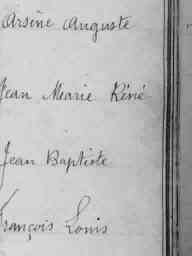 Arsène Auguste
Jean Marie Réné
Jean Baptiste
François Louis